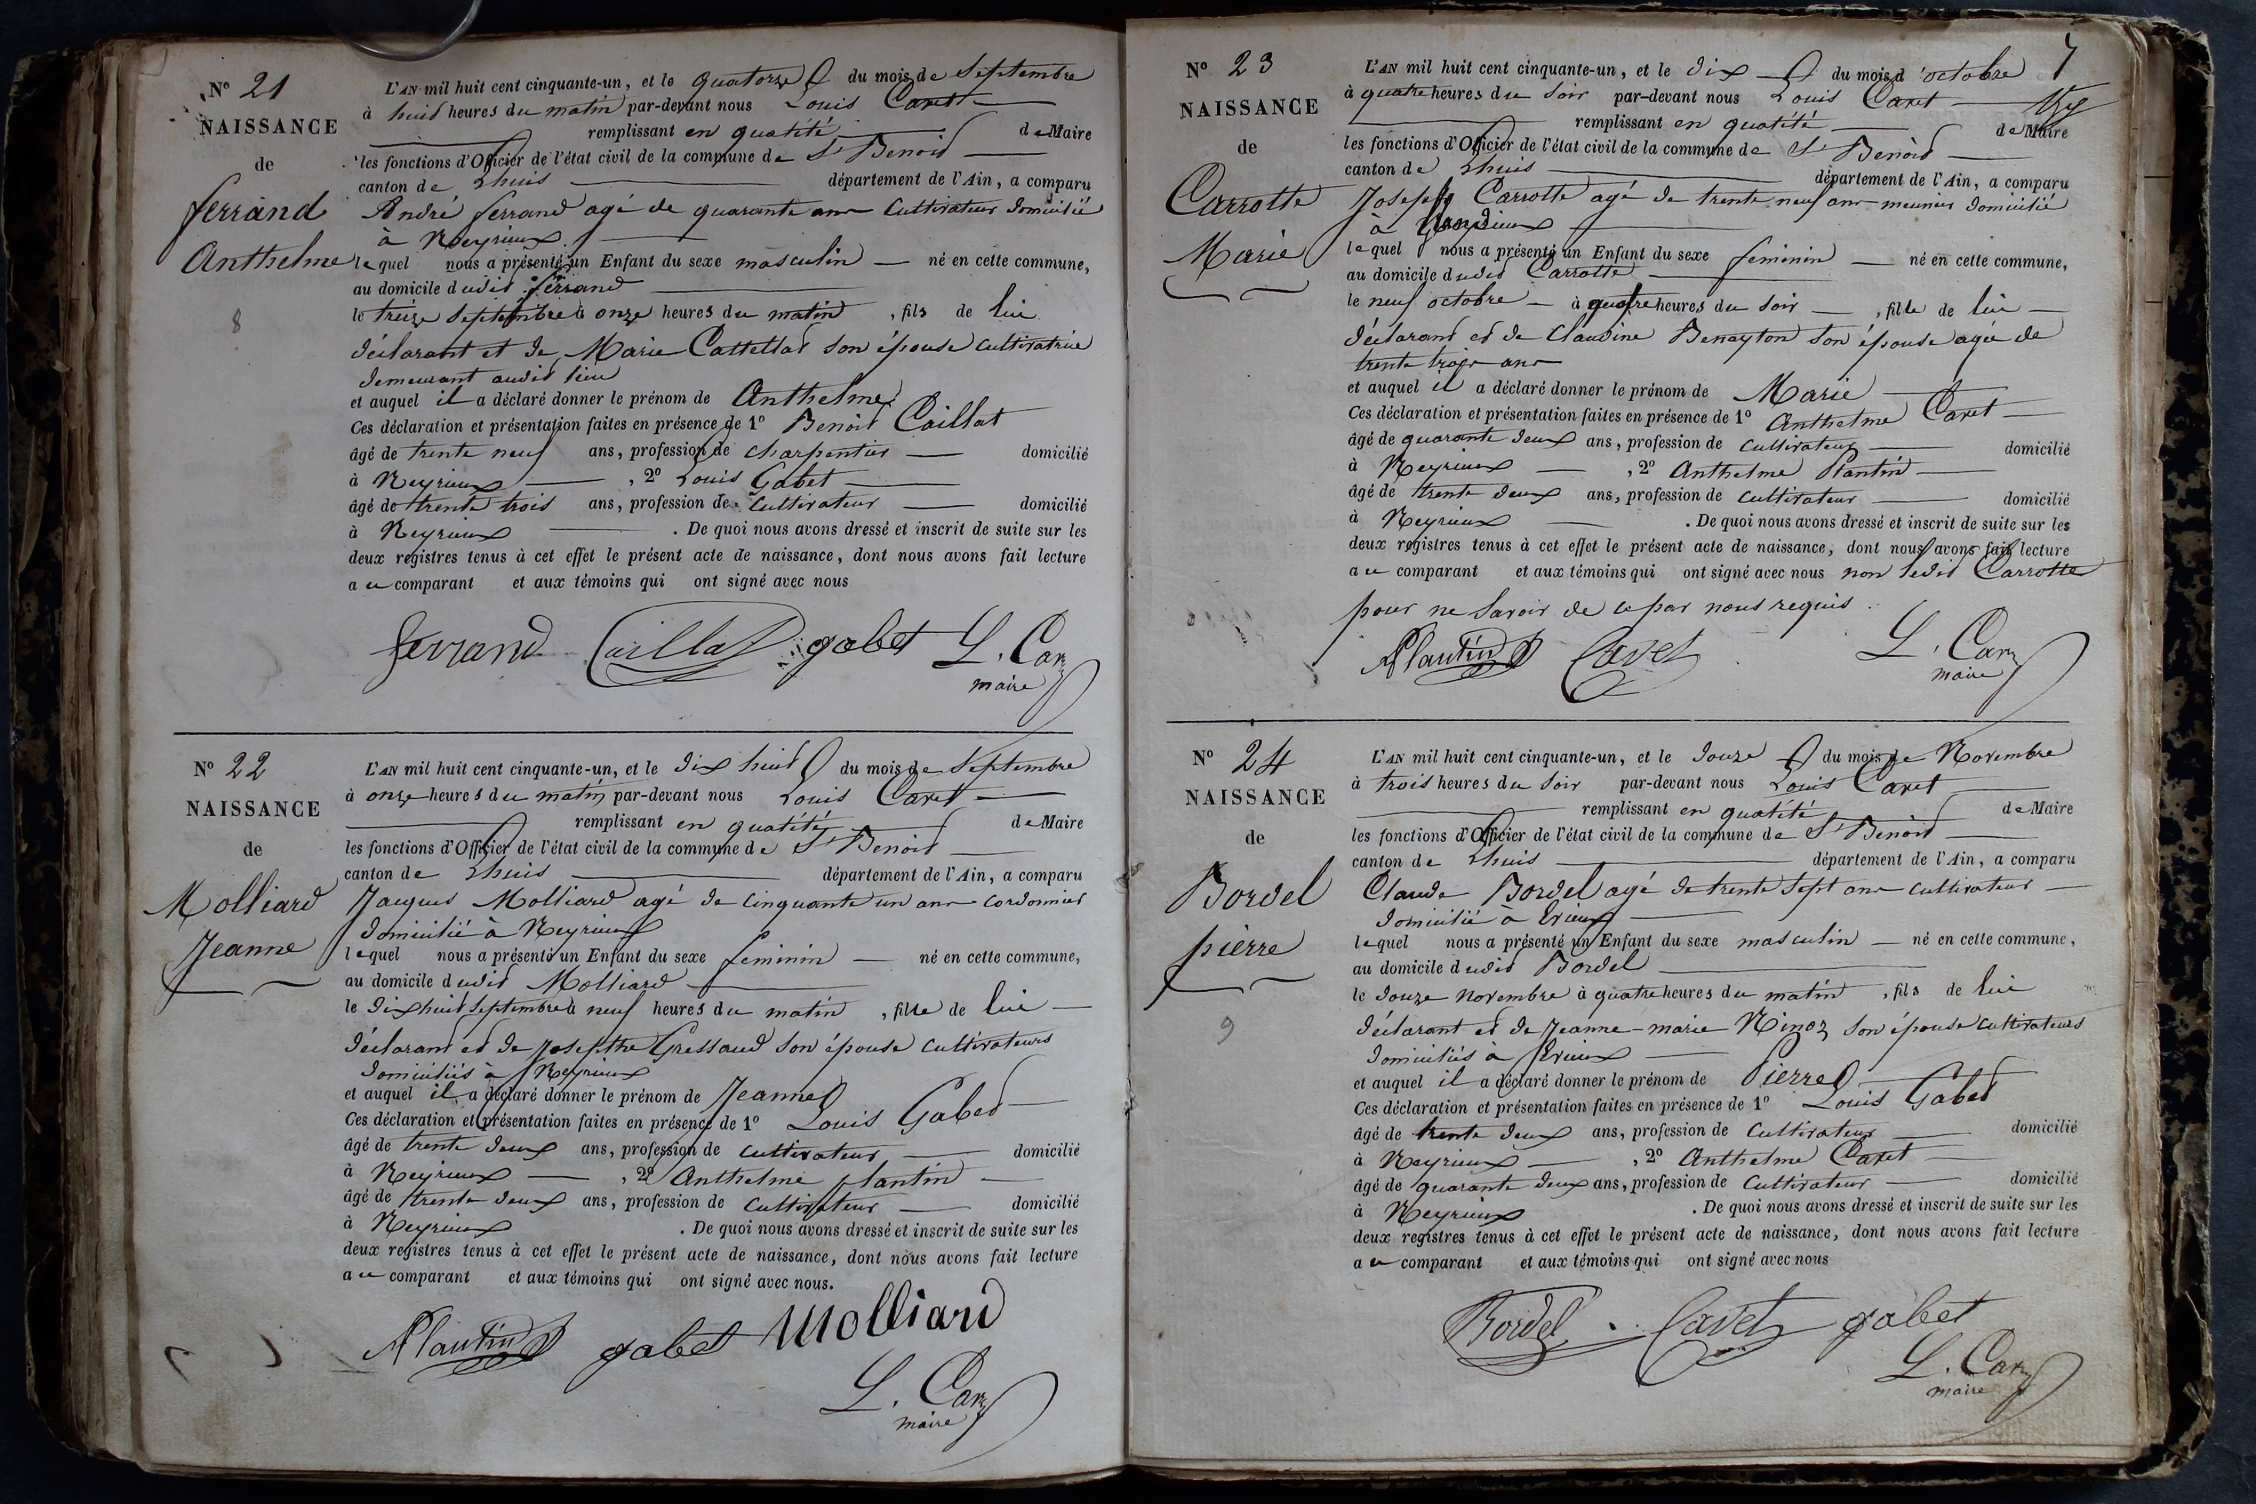 N° 21
NAISSANCE
de
ferrand
Anthelme
8
L'AN mil huit cent cinquante-un, et le quatorze du mois de Septembre
à huit heures du matin par-devant nous Louis Cavet
remplissant en qualité de Maire
les fonctions d'Officier de l'état civil de la commune de St Benoit
canton de Lhuis département de l'Ain, a comparu
André ferrand agé de quarante ans Cultivateur domicilié
à Neyrieux
lequel nous a présenté un Enfant du sexe masculin né en cette commune,
au domicile dudit ferrand
le treize Septembre à onze heures du matin, fils de lui
déclarant et de Marie Cattellat son épouse cultivatrice
demeurant audit lieu
et auquel il a déclaré donner le prénom de Anthelme
Ces déclaration et présentation faites en présence de 1° Benoit Caillat
âgé de trente neuf ans, profession de charpentier domicilié
à Neyrieux, 2° Louis Gabet
âgé de trente trois ans, profession de cultivateur domicilié
à Neyrieux. De quoi nous avons dressé et inscrit de suite sur les
deux registres tenus à cet effet le présent acte de naissance, dont nous avons fait lecture
au comparant et aux témoins qui ont signé avec nous
ferrand Caillat gabet L. Cavet
maire
N° 22
NAISSANCE
de
Molliard
Jeanne
L'AN mil huit cent cinquante-un, et le dix huit du mois de Septembre
à onze heures du matin par-devant nous Louis Cavet
remplissant en qualité de Maire
les fonctions d'Officier de l'état civil de la commune de St Benoit
canton de Lhuis département de l'Ain, a comparu
Jacques Molliard agé de cinquante un ans cordonnier
domicilié à Neyrieux
lequel nous a présenté un Enfant du sexe feminin né en cette commune,
au domicile dudit Molliard
le dix huit Septembre à neuf heures du matin, fille de lui
déclarant et de Josepthe Gressaud son épouse cultivateurs
domiciliés à Neyrieux
et auquel il a déclaré donner le prénom de Jeanne
Ces déclaration et présentation faites en présence de 1° Louis Gabet
âgé de trente deux ans, profession de cultivateur domicilié
à Neyrieux, 2° Anthelme plantin
âgé de trente deux ans, profession de cultivateur domicilié
à Neyrieux. De quoi nous avons dressé et inscrit de suite sur les
deux registres tenus à cet effet le présent acte de naissance, dont nous avons fait lecture
au comparant et aux témoins qui ont signé avec nous.
Plantin gabet Molliard
L. Cavet
maire
7
N° 23
NAISSANCE
de
Carrotte
Marie
L'AN mil huit cent cinquante-un, et le dix du mois d'octobre
à quatre heures du soir par-devant nous Louis Cavet
remplissant en qualité de Maire
les fonctions d'Officier de l'état civil de la commune de St Benoit
canton de Lhuis département de l'Ain, a comparu
Joseph Carrotte agé de trente neuf ans meunier domicilié
à
lequel nous a présenté un Enfant du sexe feminin né en cette commune,
au domicile dudit Carrotte
le neuf octobre à quatre heures du soir, fille de lui
déclarant et de Claudine Benayton son épouse agée de
trente trois ans
et auquel il a déclaré donner le prénom de Marie
Ces déclaration et présentation faites en présence de 1° Anthelme Cavet
âgé de quarante deux ans, profession de cultivateur domicilié
à Neyrieux, 2° Anthelme Plantin
âgé de trente deux ans, profession de cultivateur domicilié
à Neyrieux. De quoi nous avons dressé et inscrit de suite sur les
deux registres tenus à cet effet le présent acte de naissance, dont nous avons fait lecture
au comparant et aux témoins qui ont signé avec nous non ledit Carrotte
pour ne savoir de ce par nous requis.
Plantin Cavet L. Cavet
maire
N° 24
NAISSANCE
de
Bordel
pierre
9
L'AN mil huit cent cinquante-un, et le douze du mois de Novembre
à trois heures du soir par-devant nous Louis Cavet
remplissant en qualité de Maire
les fonctions d'Officier de l'état civil de la commune de St Benoit
canton de Lhuis département de l'Ain, a comparu
Claude Bordel agé de trente sept ans cultivateur
domicilié à Evieux
lequel nous a présenté un Enfant du sexe masculin né en cette commune,
au domicile dudit Bordel
le douze novembre à quatre heures du matin, fils de lui
déclarant et de Jeanne-marie Ninoz son épouse cultivateurs
domiciliés à Evieux
et auquel il a déclaré donner le prénom de Pierre
Ces déclaration et présentation faites en présence de 1° Louis Gabet
âgé de trente deux ans, profession de cultivateur domicilié
à Neyrieux, 2° Anthelme Cavet
âgé de quarante deux ans, profession de cultivateur domicilié
à Neyrieux. De quoi nous avons dressé et inscrit de suite sur les
deux registres tenus à cet effet le présent acte de naissance, dont nous avons fait lecture
au comparant et aux témoins qui ont signé avec nous
Bordel Cavet gabet
L. Cavet
maire